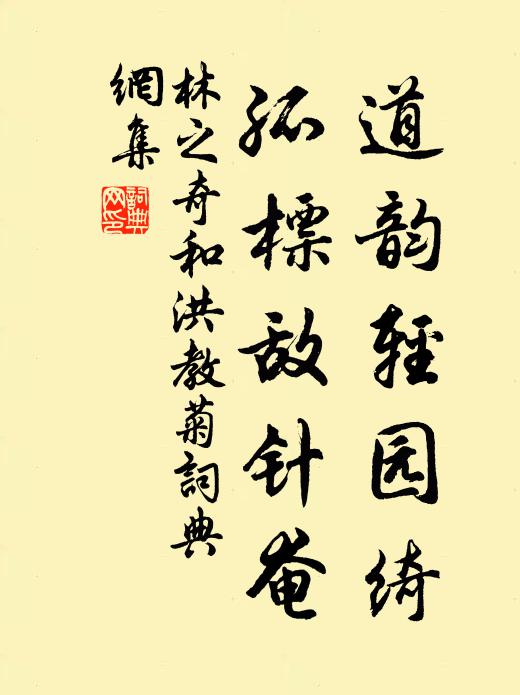 道韵輕园绮
孤標敌针奄
林之奇和洪教菊詞典
網集
詞典
网印